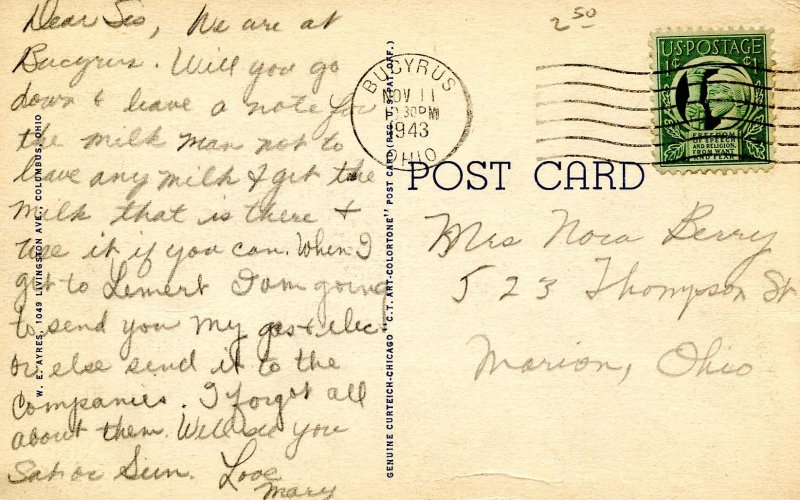 Dear Sis, We are at
Bucyrus. Will you go
down & leave a note for
the milk man not to
leave any milk & get the
milk that is there &
use it if you can. When I
get to Lemert I am going
to send you my gas & elec
or else send it to the
Companies. I forgot all
about them. Will see you
Sat or Sun. Love
Mary
W. E. AYRES, 1049 LIVINGSTON AVE., COLUMBUS, OHIO
GENUINE CURTEICH-CHICAGO "C.T. ART-COLORTONE" POST CARD (REG. U.S. PAT. OFF.)
2 50
BUCYRUS
NOV 11
30PM
1943
OHIO
U.S. POSTAGE
1¢ ¢1
FREEDOM
OF SPEECH
AND RELIGION,
FROM WANT
AND FEAR
POST CARD
Mrs Nora Berry
523 Thompson St
Marion, Ohio